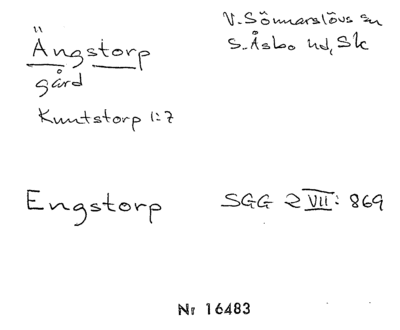 Ängstorp
gård
Knutstorp 1:7
V. Sönnarslövs sn
S. Åsbo hd, Sk
Engstorp
SGG 2 VII: 869
Nr 16483